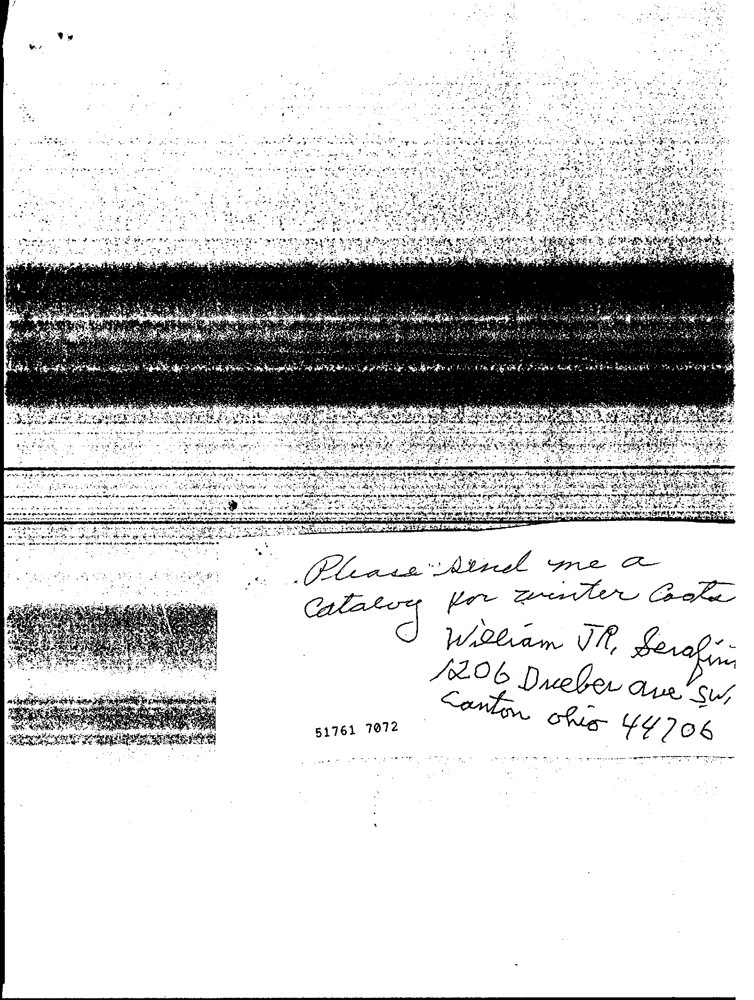 Please send me a
Catalog for winter Coats
William JR, Serafin
1206 Dueber ave SW,
Canton ohio 44706
51761 7072